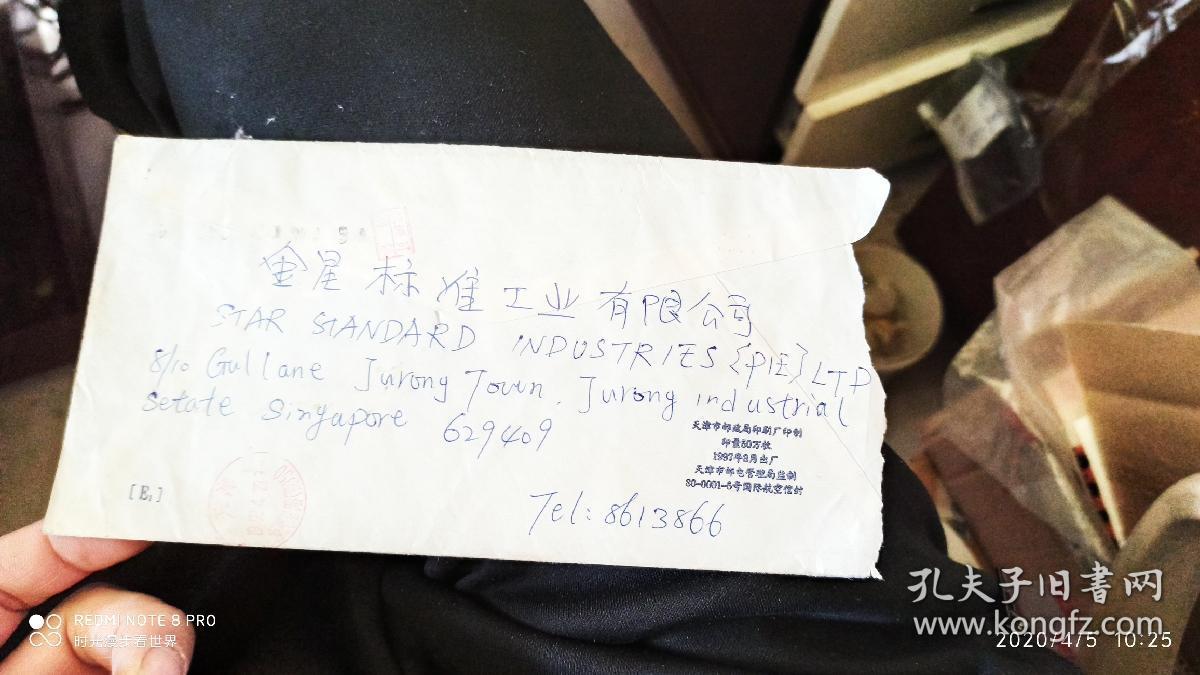 金星标准工业有限公司
STAR STANDARD INDUSTRIES {PIE} LTD
8/10 Gullane Jurong Town. Jurong industrial
Setate Singapore 629409
天津市邮政局印刷厂印制
印量50万枚
1997年3月出厂
天津市邮电管理局监制
SO-0001-6号国际航空信封
[B₁]
Tel: 8613866
孔夫子旧書网
www.kongfz.com
REDMI NOTE 8 PRO
时光漫步看世界
2020/4/5 10:25